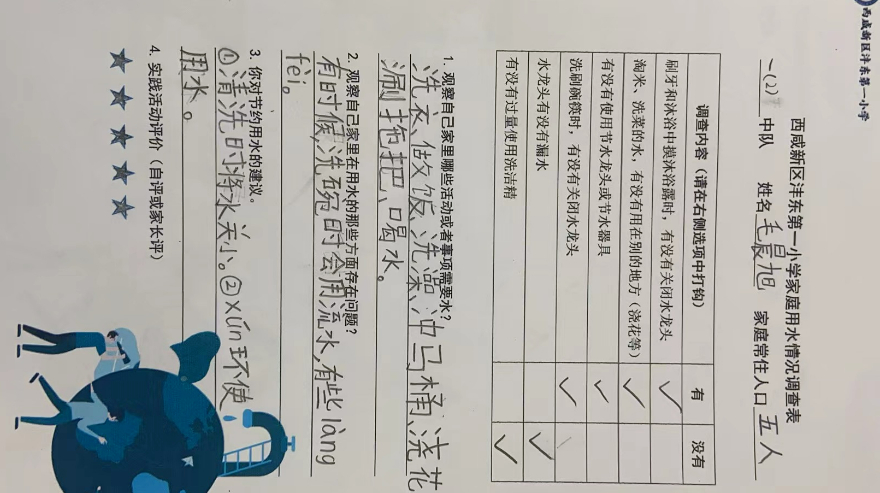 西咸新区沣东第一小学
西咸新区沣东第一小学家庭用水情况调查表
一(2)中队 姓名毛晨旭 家庭常住人口五人
调查内容（请在右侧选项中打钩） 有 没有
刷牙和沐浴中摸沐浴露时，有没有关闭水龙头 ✓
淘米、洗菜的水，有没有用在别的地方（浇花等） ✓
有没有使用节水龙头或节水器具 ✓
洗刷碗筷时，有没有关闭水龙头 ✓
水龙头有没有漏水 ✓
有没有过量使用洗洁精 ✓
1. 观察自己家里哪些活动或者事项需要水？
洗衣、做饭、洗澡、冲马桶、浇花
涮拖把、喝水。
2. 观察自己家里在用水的那些方面存在问题？
有时候,洗碗时会用流水,有些làng
fèi。
3. 你对节约用水的建议。
①清洗时将水关小。②xún环使
用水。
4. 实践活动评价（自评或家长评）